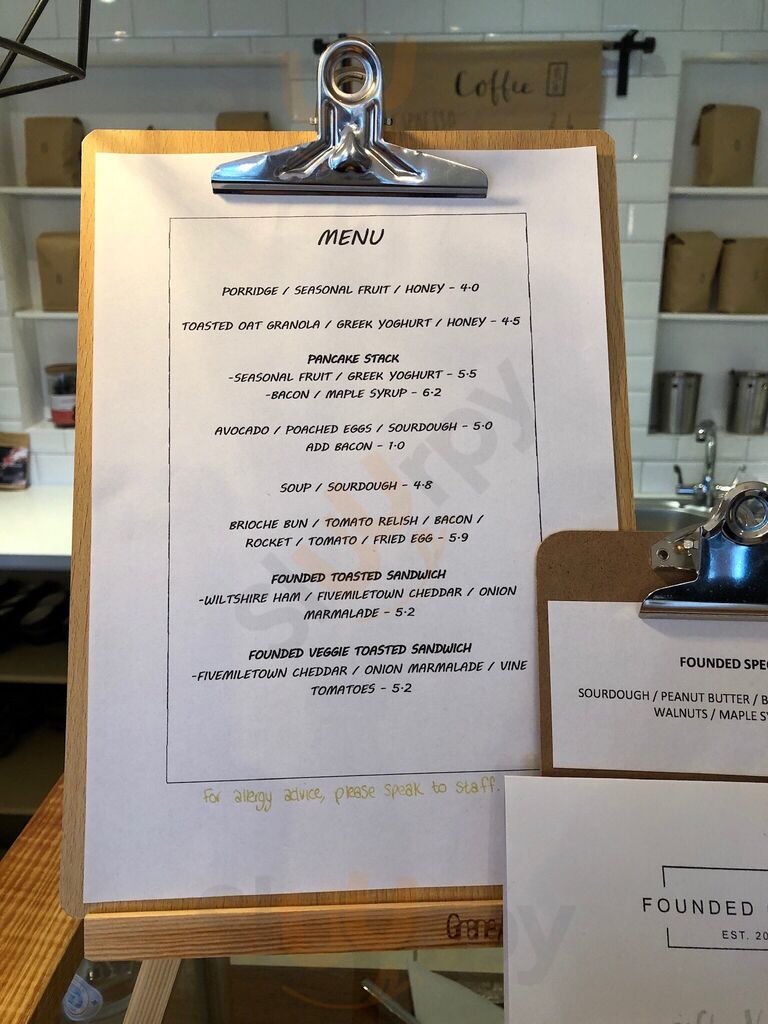 Coffee
MENU
PORRIDGE / SEASONAL FRUIT / HONEY - 4.0
TOASTED OAT GRANOLA / GREEK YOGHURT / HONEY - 4.5
PANCAKE STACK
-SEASONAL FRUIT / GREEK YOGHURT - 5.5
-BACON / MAPLE SYRUP - 6.2
AVOCADO / POACHED EGGS / SOURDOUGH - 5.0
ADD BACON - 1.0
SOUP / SOURDOUGH - 4.8
BRIOCHE BUN / TOMATO RELISH / BACON /
ROCKET / TOMATO / FRIED EGG - 5.9
FOUNDED TOASTED SANDWICH
-WILTSHIRE HAM / FIVEMILETOWN CHEDDAR / ONION
MARMALADE - 5.2
FOUNDED VEGGIE TOASTED SANDWICH
-FIVEMILETOWN CHEDDAR / ONION MARMALADE / VINE
TOMATOES - 5.2
For allergy advice, please speak to staff.
FOUNDED SPE
SOURDOUGH / PEANUT BUTTER / B
WALNUTS / MAPLE S
FOUNDED
EST. 20
Sluurpy